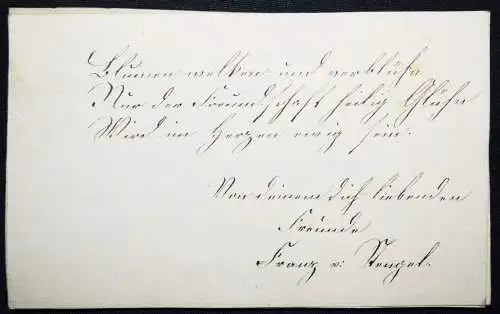 Blumen welken und verblühn
Nur der Freundschaft heilig Glühn
Wird im Herzen ewig sein.
Von deinem dich liebenden
Freunde
Franz v: Stengel.